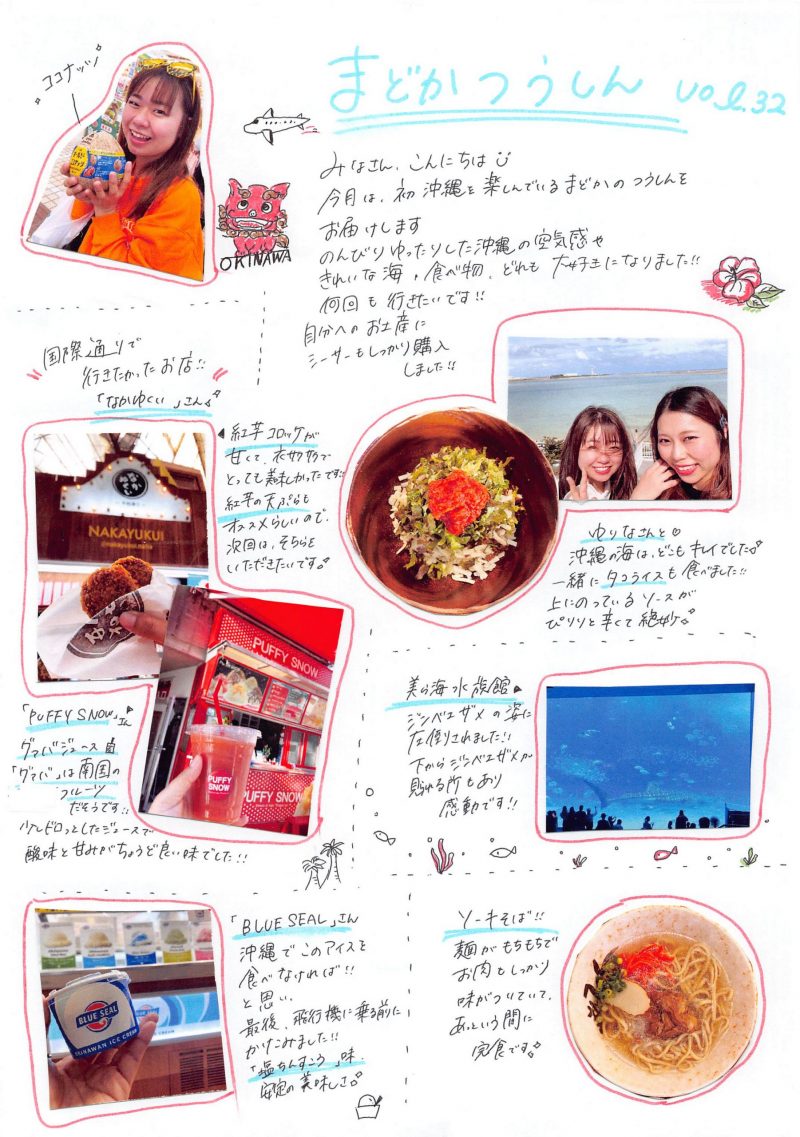 まどかつうしん vol.32
ココナッツ
みなさん、こんにちは
今月は、初沖縄を楽しんでいるまどかのつうしんを
お届けします
のんびりゆったりした沖縄の空気感や
きれいな海、食べ物、どれも大好きになりました!!
何回も行きたいです!!
自分へのお土産に
シーサーもしっかり購入
しました!!
OKINAWA
国際通りで
行きたかったお店!!
「なかゆくい」さん
紅芋コロッケが
甘くて、衣サクサクで
とっても美味しかったです!!
紅芋の天ぷらも
オススメらしいので、
次回は、そちらを
いただきたいです。
NAKAYUKUI
ゆりなさんと
沖縄の海は、どこもキレイでした
一緒にタコライスも食べました!!
上にのっているソースが
ぴりりと辛くて絶妙
PUFFY SNOW
PUFFY SNOW
PUFFY SNOW
「PUFFY SNOW」さん
グァバジュース
「グァバ」は南国の
フルーツ
だそうです!!
少しドロっとしたジュースで
酸味と甘みがちょうど良い味でした!!
美ら海水族館
ジンベエザメの姿に
圧倒されました!!
下からジンベエザメが
見られる所もあり
感動です!!
BLUE SEAL
OKINAWAN ICE CREAM
「BLUE SEAL」さん
沖縄でこのアイスを
食べなければ!!
と思い、
最後、飛行機に乗る前に
かけこみました!!
「塩ちんすこう」味、
安定の美味しさ
ソーキそば!!
麺がもちもちで
お肉もしっかり
味がついていて、
あっという間に
完食です